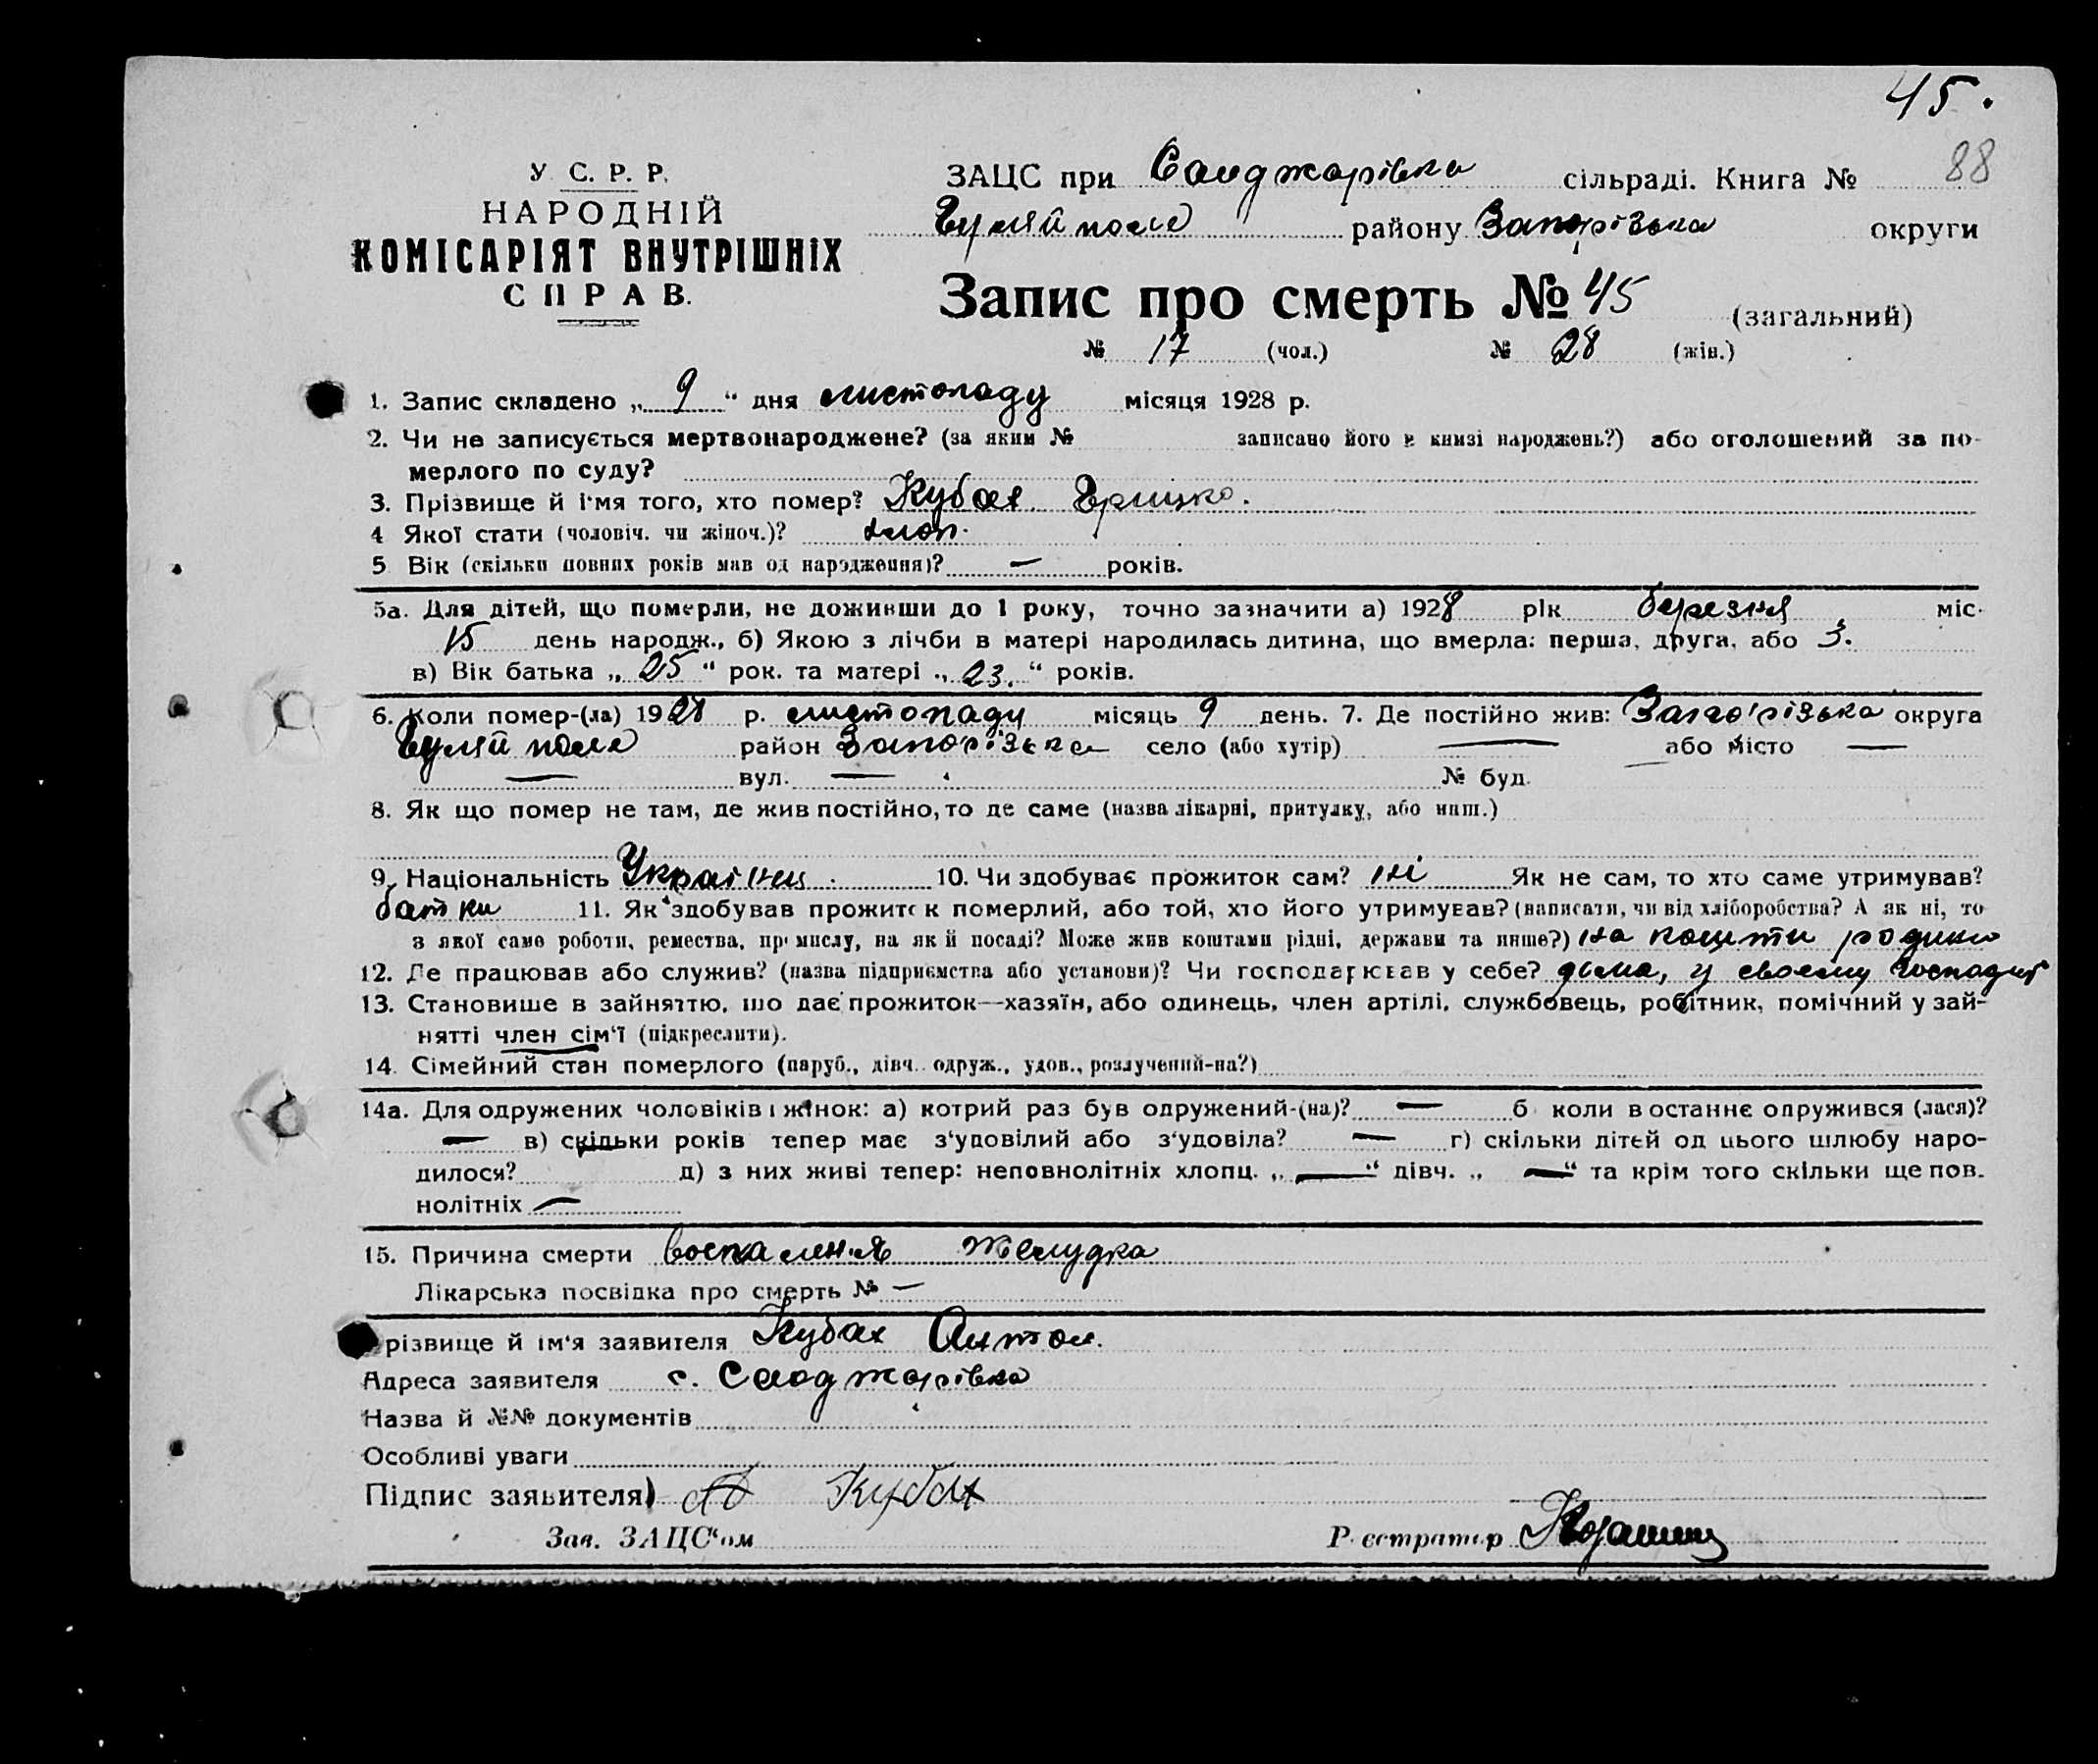 45.
88
У С. Р. Р.
НАРОДНІЙ
КОМІСАРІЯТ ВНУТРІШНІХ
СПРАВ.
ЗАЦС при Санджарівка сільраді. Книга №
Гуляй поле району Запорізька округи
Запис про смерть № 45 (загальний)
№ 17 (чол.) № 28 (жін.)
1. Запис складено „ 9 “ дня листопаду місяця 1928 р.
2. Чи не записується мертвонароджене? (за яким № записано його в книзі народжень?) або оголошений за по-
мерлого по суду?
3. Прізвище й ім'я того, хто помер? Кубах Грицко.
4 Якої стати (чоловіч. чи жіноч.)? хлоп.
5 Вік (скільки повних років мав од народження)? — років.
5а. Для дітей, що померли, не доживши до 1 року, точно зазначити а) 1928 рік березня міс.
15 день народж., б) Якою з лічби в матері народилась дитина, що вмерла: перша, друга, або 3.
в) Вік батька „ 25 “ рок. та матері „ 23. “ років.
6. Коли помер-(ла) 1928 р. листопаду місяць 9 день. 7. Де постійно жив: Запорізька округа
Гуляй поле район Запорізька село (або хутір) — або місто —
— вул. — № буд.
8. Як що помер не там, де жив постійно, то де саме (назва лікарні, притулку, або инш.)
9. Національність Українец. 10. Чи здобуває прожиток сам? ні Як не сам, то хто саме утримував?
батки 11. Як здобував прожиток померлий, або той, хто його утримував? (написати, чи від хліборобства? А як ні, то
з якої саме роботи, ремества, промислу, на якій посаді? Може жив коштами рідні, держави та инше?) на кошти родини
12. Де працював або служив? (назва підприємства або установи)? Чи господарював у себе? дома, у своему
13. Становище в зайняттю, що дає прожиток—хазяїн, або одинець, член артілі, службовець, робітник, помічний у зай-
нятті член сім'ї (підкреслити).
14. Сімейний стан померлого (паруб., дівч. одруж., удов., розлучений-на?)
14а. Для одружених чоловіків і жінок: а) котрий раз був одружений-(на)? — б коли востаннє одружився (лася)?
— в) скільки років тепер має з'удовілий або з'удовіла? — г) скільки дітей од цього шлюбу наро-
дилося? д) з них живі тепер: неповнолітніх хлопц. „ — “ дівч. „ — “ та крім того скільки ще пов.
нолітніх —
15. Причина смерти воспаления желудка
Лікарська посвідка про смерть № —
різвище й ім'я заявителя Кубах Антон.
Адреса заявителя с. Санджарівка
Назва й №№ документів
Особливі уваги
Підпис заявителя) Кубах
Зав. ЗАЦС'ом Реєстратор